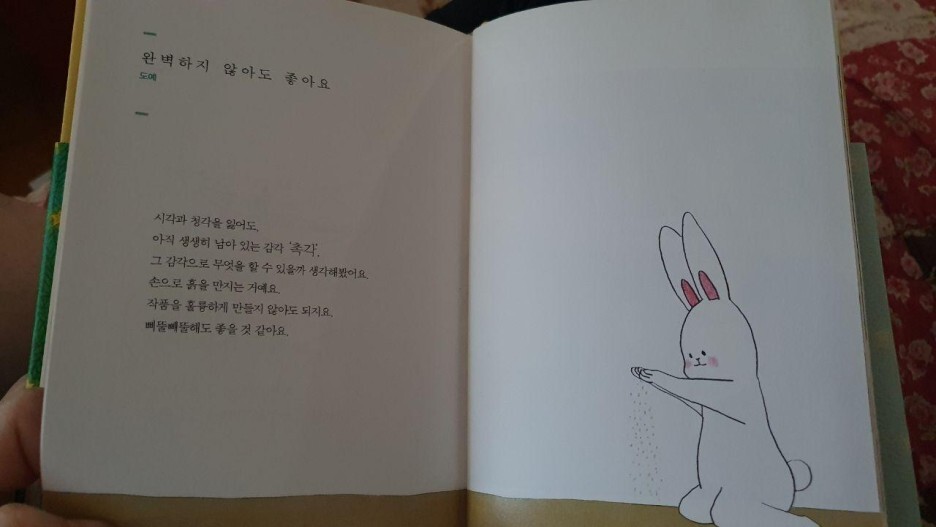 완벽하지 않아도 좋아요
도예
시각과 청각을 잃어도,
아직 생생히 남아 있는 감각 '촉각',
그 감각으로 무엇을 할 수 있을까 생각해봤어요.
손으로 흙을 만지는 거예요.
작품을 훌륭하게 만들지 않아도 되지요.
삐뚤빼뚤해도 좋을 것 같아요.